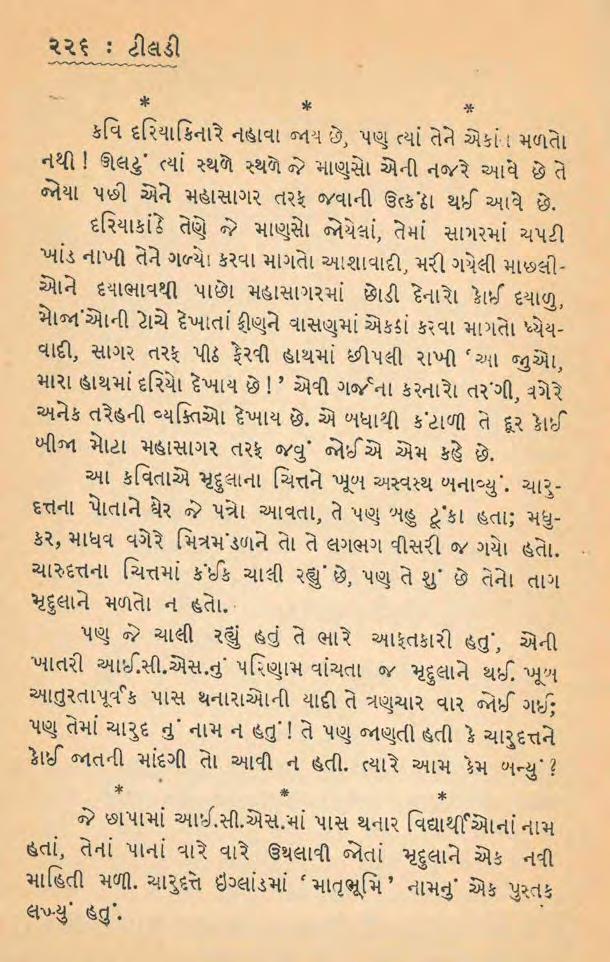 ૨૨૬ : ટીલડી
* * *
કવિ દરિયાકિનારે નહાવા જાય છે, પણ ત્યાં તેને એકાંત મળતો
નથી! ઊલટું ત્યાં સ્થળે સ્થળે જે માણસો એની નજરે આવે છે તે
જોયા પછી એને મહાસાગર તરફ જવાની ઉત્કંઠા થઈ આવે છે.
દરિયાકાંઠે તેણે જે માણસો જોયેલાં, તેમાં સાગરમાં ચપટી
ખાંડ નાખી તેને ગળ્યો કરવા માગતો આશાવાદી, મરી ગયેલી માછલી-
ઓને દયાભાવથી પાછો મહાસાગરમાં છોડી દેનારો કોઈ દયાળુ,
મોજાંઓની ટોચે દેખાતાં ફીણને વાસણમાં એકઠાં કરવા માગતો ધ્યેય-
વાદી, સાગર તરફ પીઠ ફેરવી હાથમાં છીપલી રાખી ‘આ જુઓ,
મારા હાથમાં દરિયો દેખાય છે!’ એવી ગર્જના કરનારો તરંગી, વગેરે
અનેક તરેહની વ્યક્તિઓ દેખાય છે. એ બધાથી કંટાળી તે દૂર કોઈ
બીજા મોટા મહાસાગર તરફ જવું જોઈએ એમ કહે છે.
આ કવિતાએ મૃદુલાના ચિત્તને ખૂબ અસ્વસ્થ બનાવ્યું. ચારુ-
દત્તના પોતાને ઘેર જે પત્રો આવતા, તે પણ બહુ ટૂંકા હતા; મધુ-
કર, માધવ વગેરે મિત્રમંડળને તો તે લગભગ વીસરી જ ગયો હતો.
ચારુદત્તના ચિત્તમાં કંઈક ચાલી રહ્યું છે, પણ તે શું છે તેનો તાગ
મૃદુલાને મળતો ન હતો.
પણ જે ચાલી રહ્યું હતું તે ભારે આફતકારી હતું, એની
ખાતરી આઈ.સી.એસ.નું પરિણામ વાંચતા જ મૃદુલાને થઈ. ખૂબ
આતુરતાપૂર્વક પાસ થનારાઓની યાદી તે ત્રણચાર વાર જોઈ ગઈ;
પણ તેમાં ચારુદ નું નામ ન હતું! તે પણ જાણતી હતી કે ચારુદત્તને
કોઈ જાતની માંદગી તો આવી ન હતી. ત્યારે આમ કેમ બન્યું?
* * *
જે છાપામાં આઈ.સી.એસ.માં પાસ થનાર વિદ્યાર્થીઓનાં નામ
હતાં, તેનાં પાનાં વારે વારે ઉથલાવી જોતાં મૃદુલાને એક નવી
માહિતી મળી. ચારુદત્તે ઇંગ્લાંડમાં ‘માતૃભૂમિ’ નામનું એક પુસ્તક
લખ્યું હતું.